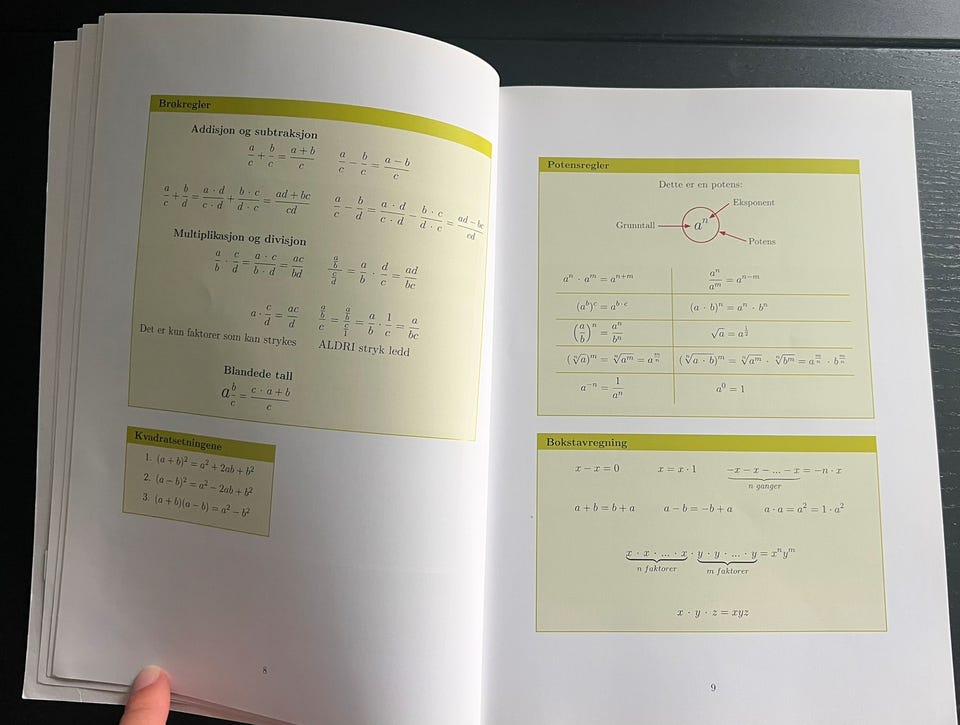 Brøkregler
Addisjon og subtraksjon
a/c + b/c = (a + b)/c    a/c − b/c = (a − b)/c
a/c + b/d = (a · d)/(c · d) + (b · c)/(d · c) = (ad + bc)/cd    a/c − b/d = (a · d)/(c · d) − (b · c)/(d · c) = (ad − bc)/cd
Multiplikasjon og divisjon
a/b · c/d = (a · c)/(b · d) = ac/bd    (a/b)/(c/d) = a/b · d/c = ad/bc
a · c/d = ac/d    (a/b)/c = (a/b)/(c/1) = a/b · 1/c = a/bc
Det er kun faktorer som kan strykes    ALDRI stryk ledd
Blandede tall
a b/c = (c · a + b)/c
Kvadratsetningene
1. (a + b)² = a² + 2ab + b²
2. (a − b)² = a² − 2ab + b²
3. (a + b)(a − b) = a² − b²
8
Potensregler
Dette er en potens:
Eksponent
Grunntall aⁿ
Potens
aⁿ · aᵐ = aⁿ⁺ᵐ    aⁿ/aᵐ = aⁿ⁻ᵐ
(a^b)^c = a^(b·c)    (a · b)ⁿ = aⁿ · bⁿ
(a/b)ⁿ = aⁿ/bⁿ    √a = a^(1/2)
(ⁿ√a)ᵐ = ⁿ√aᵐ = a^(m/n)    (ⁿ√(a · b))ᵐ = ⁿ√aᵐ · ⁿ√bᵐ = a^(m/n) · b^(m/n)
a⁻ⁿ = 1/aⁿ    a⁰ = 1
Bokstavregning
x − x = 0    x = x · 1    −x − x − ... − x = −n · x
n ganger
a + b = b + a    a − b = −b + a    a · a = a² = 1 · a²
x · x · ... · x · y · y · ... · y = xⁿyᵐ
n faktorer    m faktorer
x · y · z = xyz
9